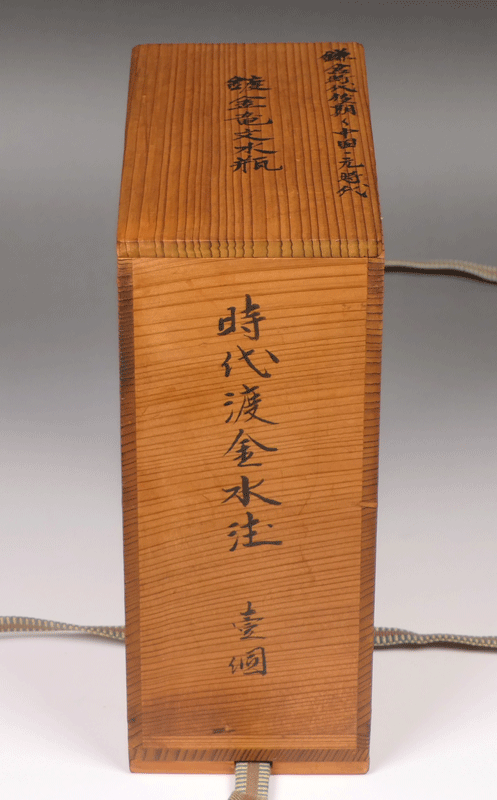 鎌倉時代後期〜中国・元時代
鍍金竜文水瓶
時代渡金水注
壹個